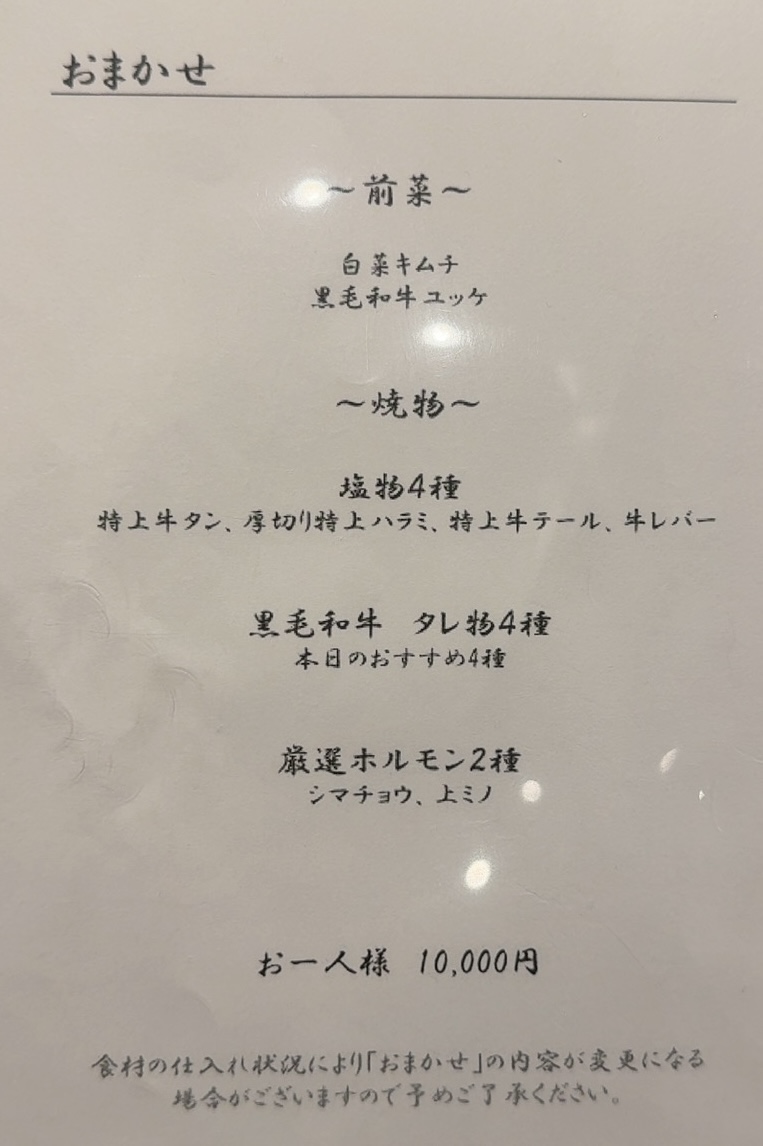 おまかせ
～前菜～
白菜キムチ
黒毛和牛ユッケ
～焼物～
塩物4種
特上牛タン、厚切り特上ハラミ、特上牛テール、牛レバー
黒毛和牛 タレ物4種
本日のおすすめ4種
厳選ホルモン2種
シマチョウ、上ミノ
お一人様 10,000円
食材の仕入れ状況により「おまかせ」の内容が変更になる
場合がございますので予めご了承ください。